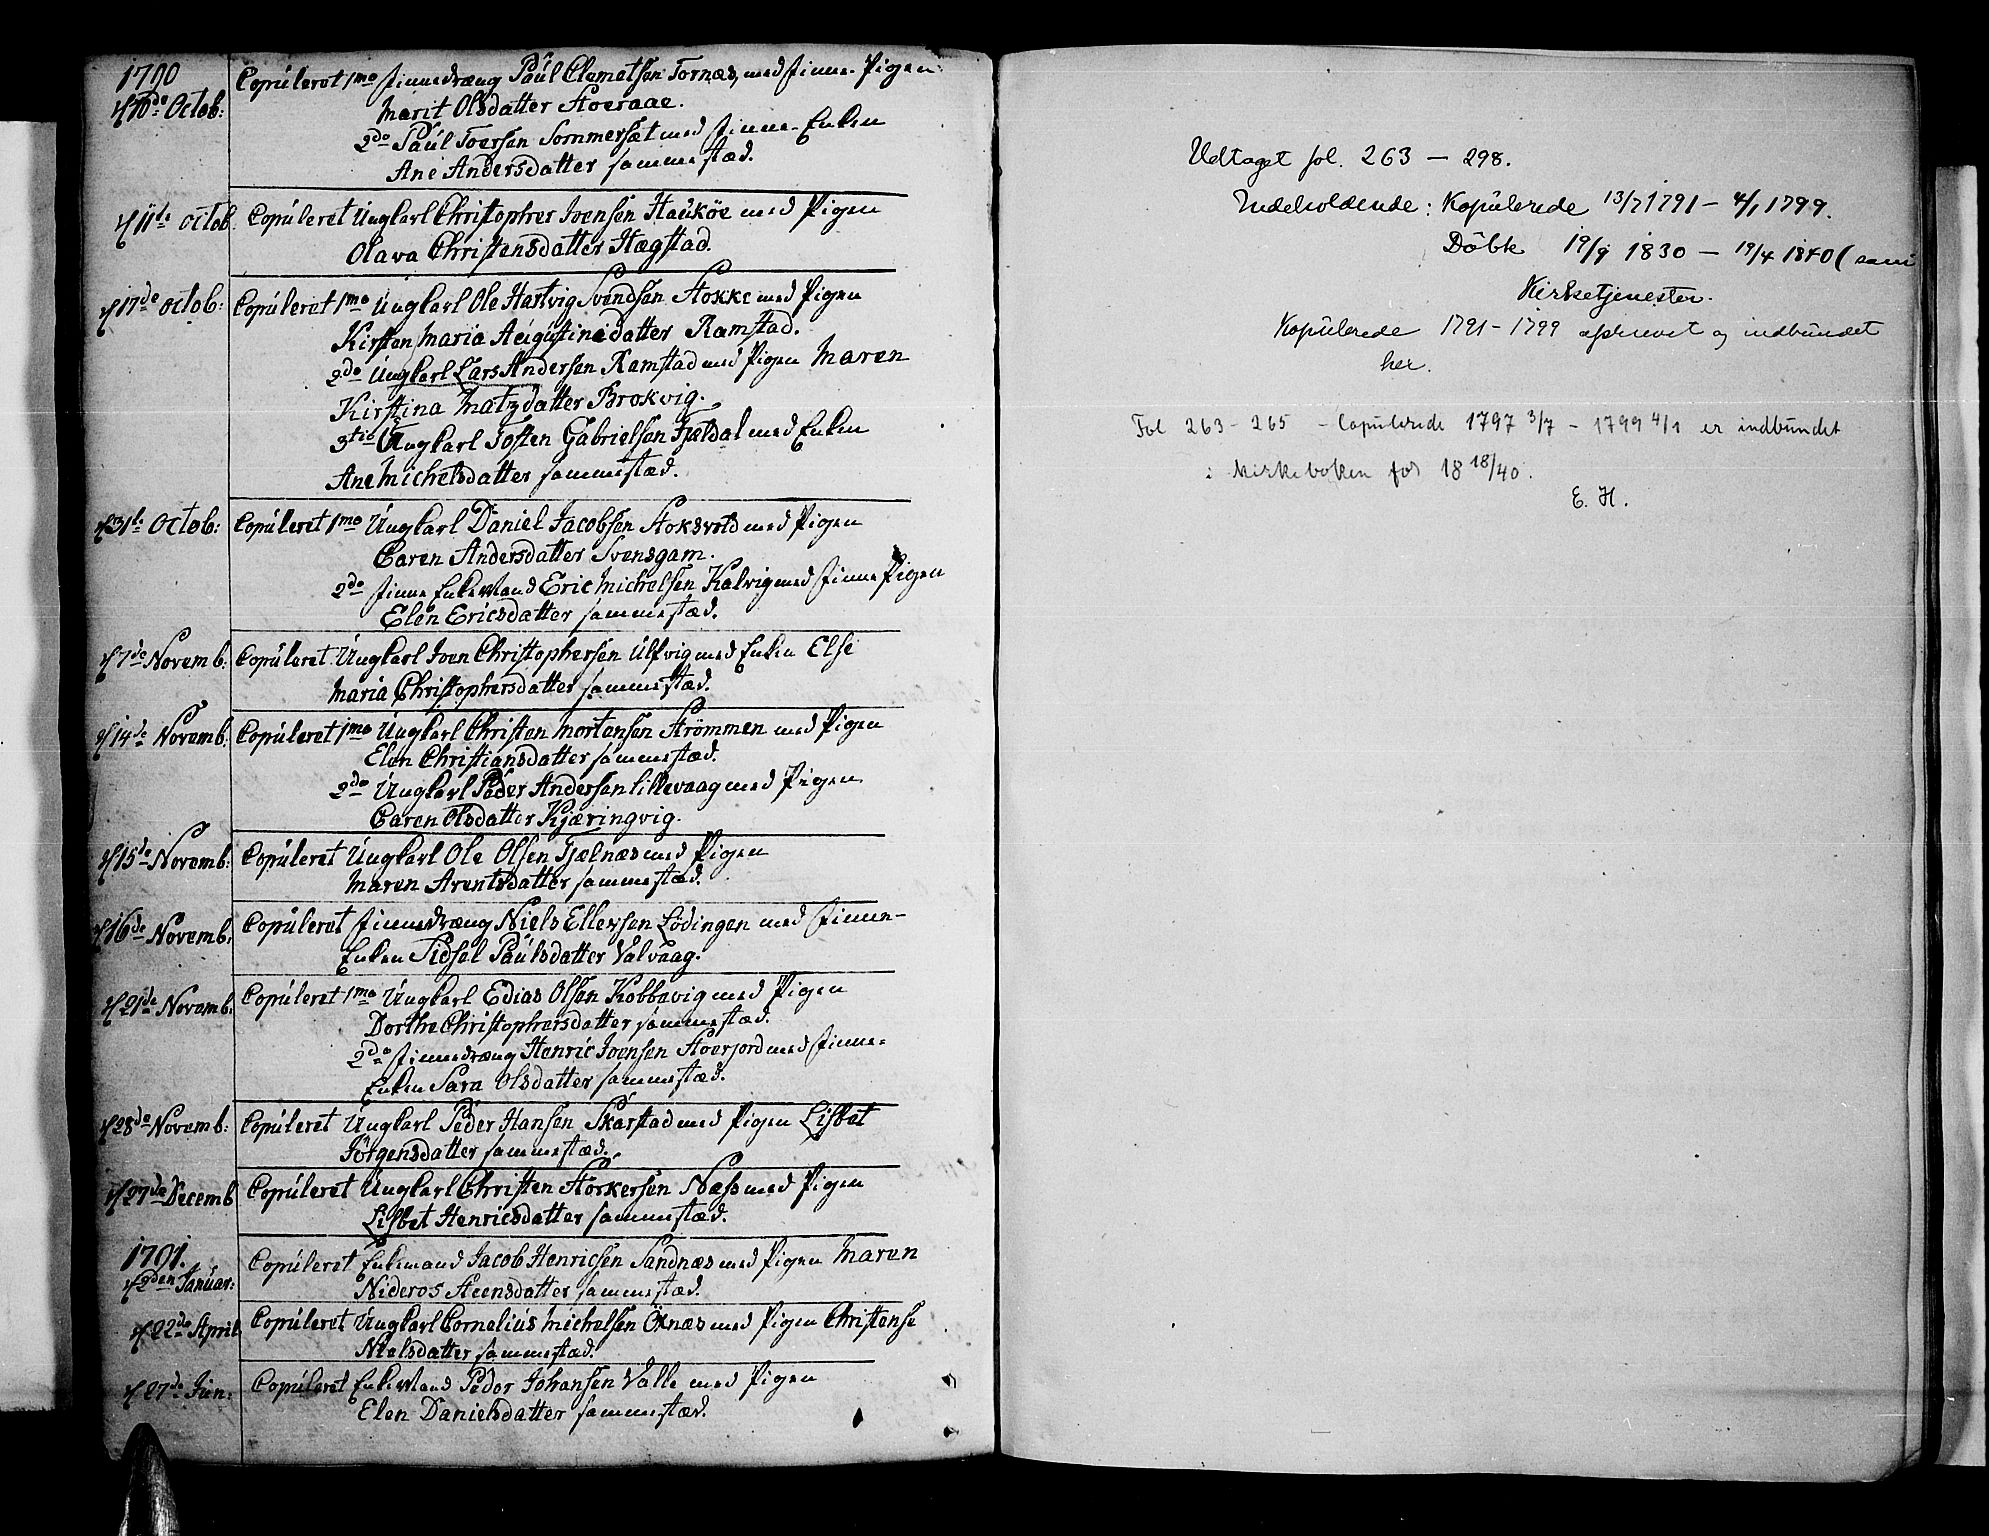 1790
d 10de Octob: Copúleret 1mo Finnedræng Paúl Clemetsen Tornæs, med Finne-Pigen
Marit Olsdatter Stoeraae.
2do Paúl Toersen Sommersæt med Finne-Enken
Ane Andersdatter sammestæd.
d 11de Octob. Copúleret Ungkarl Christopher Ivensen Haukøe med Pigen
Olava Christensdatter Hægstad.
d 17de Octob: Copúleret 1mo Ungkarl Ole Hartvig Svendsen Stokke med Pigen
Kirsten Maria Aúgústinúsdatter Ramstad.
2do Ungkarl Lars Andersen Ramstad med Pigen Maren
Kirstina Matzdatter Brokvig.
3tio Ungkarl Tosten Gabrielsen Fjeldal med Enken
Ane Michelsdatter sammestæd.
d 31te Octob: Copúleret 1mo Ungkarl Daniel Jacobsen Stoksvold med Pigen
Caren Andersdatter Svensgam.
2do Finne Enkemand Eric Michelsen Kalvig med Finne Pigen
Elen Ericsdatter sammestæd.
d 7de Novemb: Copúleret Ungkarl Iven Christophersen Ulfvig med Enken Else
Maria Christophersdatter sammestæd.
d 14de Novemb. Copúleret 1mo Ungkarl Christen Mortensen Strömmen med Pigen
Elen Christiansdatter sammestæd.
2do Ungkarl Peder Andersen Lillevaag med Pigen
Caren Olsdatter Kjæringvig.
d 15de Novemb: Copúleret Ungkarl Ole Olsen Fjælnæs med Pigen
Maren Arentsdatter sammestæd.
d 16de Novemb. Copúleret Finnedræng Niels Ellevsen Lödingen med Finne-
Enken Sidsel Paúlsdatter Valvaag.
d 21de Novemb: Copúleret 1mo Ungkarl Edias Olsen Kobbevig med Pigen
Dorthe Christophersdatter sammestæd.
2do Finnedræng Henric Ivensen Stoerjord med Finne-
Enken Sara Olsdatter sammestæd.
d 28de Novemb: Copúleret Ungkarl Peder Hansen Skarstad med Pigen Lisbet
Jörgensdatter sammestæd.
d 27de Decemb Copúleret Ungkarl Christen Storkersen Næss med Pigen
Lisbet Henricsdatter sammestæd.
1791.
d 2den Januar: Copúleret Enkemand Jacob Henricsen Sandnæs med Pigen Maren
Nideros Steensdatter sammestæd.
d 22de April Copúleret Ungkarl Cornelius Michelsen Öxnæs med Pigen Christense
Nielsdatter sammestæd.
d 27de Jun: Copúleret Enkemand Peder Johansen Valle med Pigen
Elen Danielsdatter sammestæd.
Udtaget fol. 263 — 298.
Indeholdende: Kopulerede 13/7 1791 — 4/1 1799.
Döbte 19/9 1830 — 19/4 1840 (samt
Kirketjenester.
Kopulerede 1791 - 1799 afskrevet og indbundet
her.
Fol 263 - 265 - Copulerede 1797 3/7 - 1799 4/1 er indbundet
i kirkeboken for 18 18/40.
E. H.